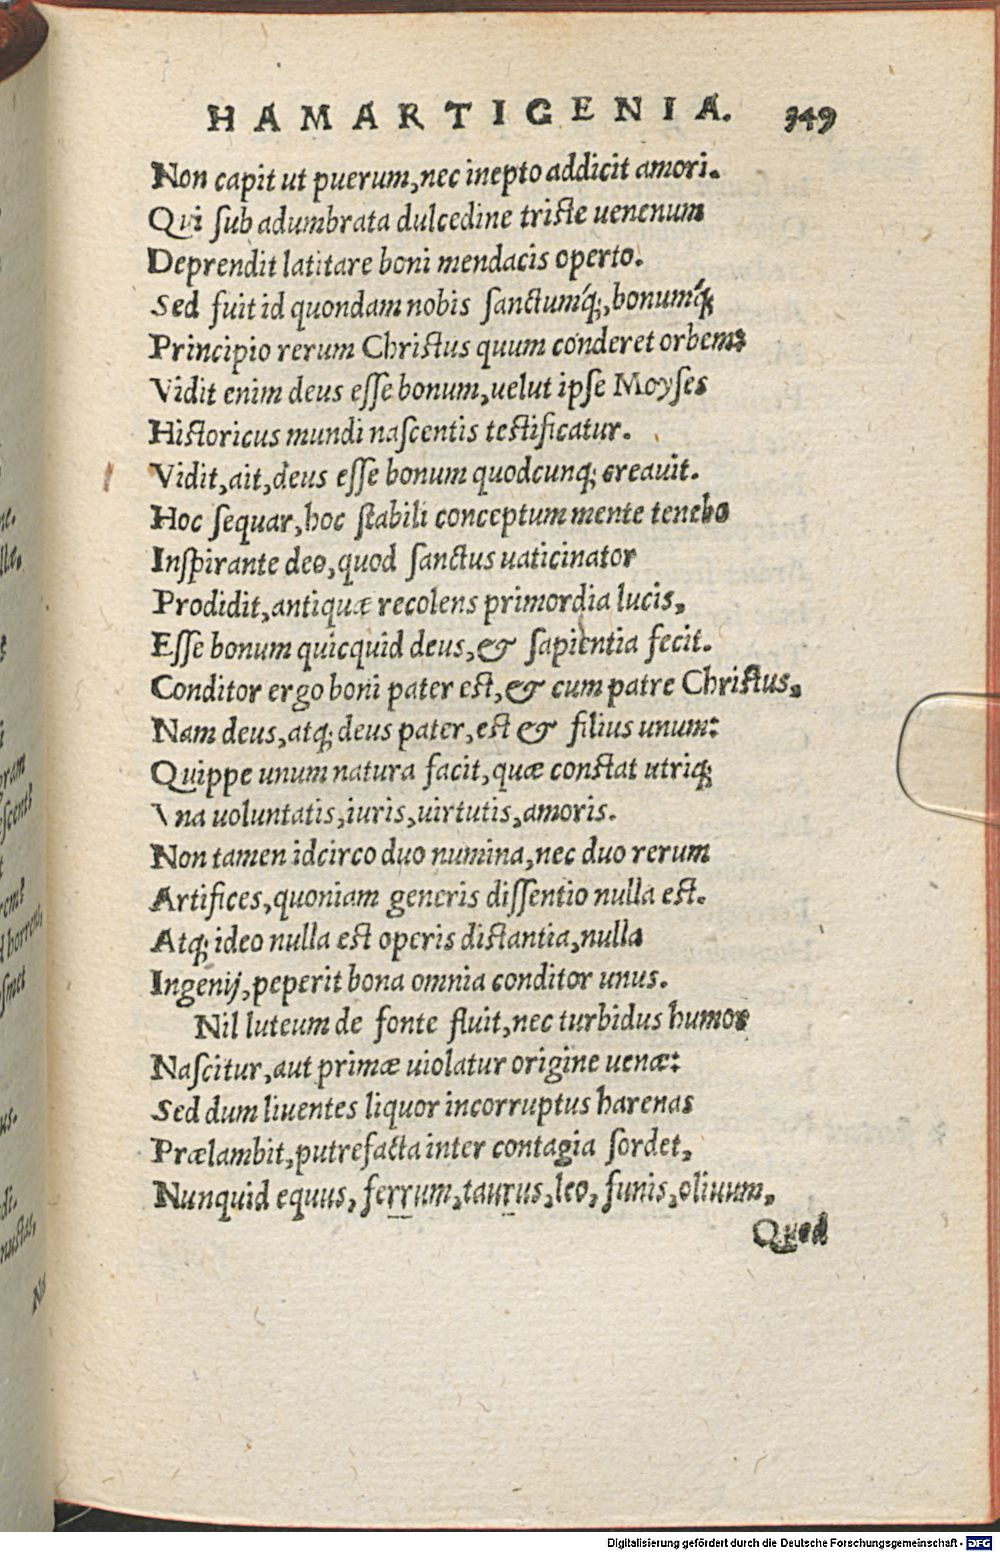 HAMARTIGENIA. 349
Non capit ut puerum, nec inepto addicit amori.
Qui ſub adumbrata dulcedine triſte uenenum
Deprendit latitare boni mendacis operto.
Sed fuit id quondam nobis ſanctumq́;, bonumq́;
Principio rerum Chriſtus quum conderet orbem:
Vidit enim deus eſſe bonum, uelut ipſe Moyſes
Hiſtoricus mundi naſcentis teſtificatur.
Vidit, ait, deus eſſe bonum quodcunq; creauit.
Hoc ſequar, hoc ſtabili conceptum mente tenebo
Inſpirante deo, quod ſanctus uaticinator
Prodidit, antiquæ recolens primordia lucis,
Eſſe bonum quicquid deus, & ſapientia fecit.
Conditor ergo boni pater eſt, & cum patre Chriſtus,
Nam deus, atq; deus pater, eſt & filius unum:
Quippe unum natura facit, quæ conſtat utriq;
Vna uoluntatis, iuris, uirtutis, amoris.
Non tamen idcirco duo numina, nec duo rerum
Artifices, quoniam generis diſſentio nulla eſt.
Atq; ideo nulla eſt operis diſtantia, nulla
Ingenij, peperit bona omnia conditor unus.
Nil luteum de fonte fluit, nec turbidus humor
Naſcitur, aut primæ uiolatur origine uenæ:
Sed dum liuentes liquor incorruptus harenas
Prælambit, putrefacta inter contagia ſordet,
Nunquid equus, ferrum, taurus, leo, funis, oliuum,
Quod
Digitalisierung gefördert durch die Deutsche Forschungsgemeinschaft - DFG